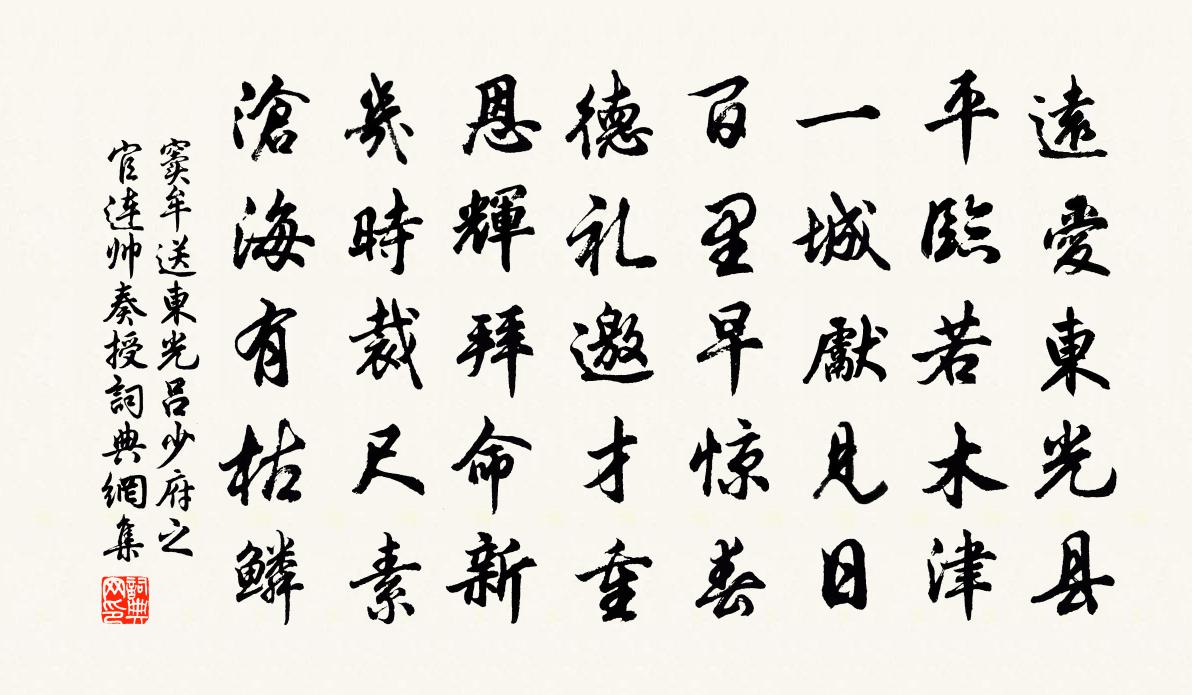 遠愛東光县
平臨若木津
一城獻見日
百里早惊春
德礼邀才重
恩輝拜命新
幾時裁尺素
滄海有枯鱗
窦牟送東光吕少府之
官连帅奏授詞典網集
詞典网印